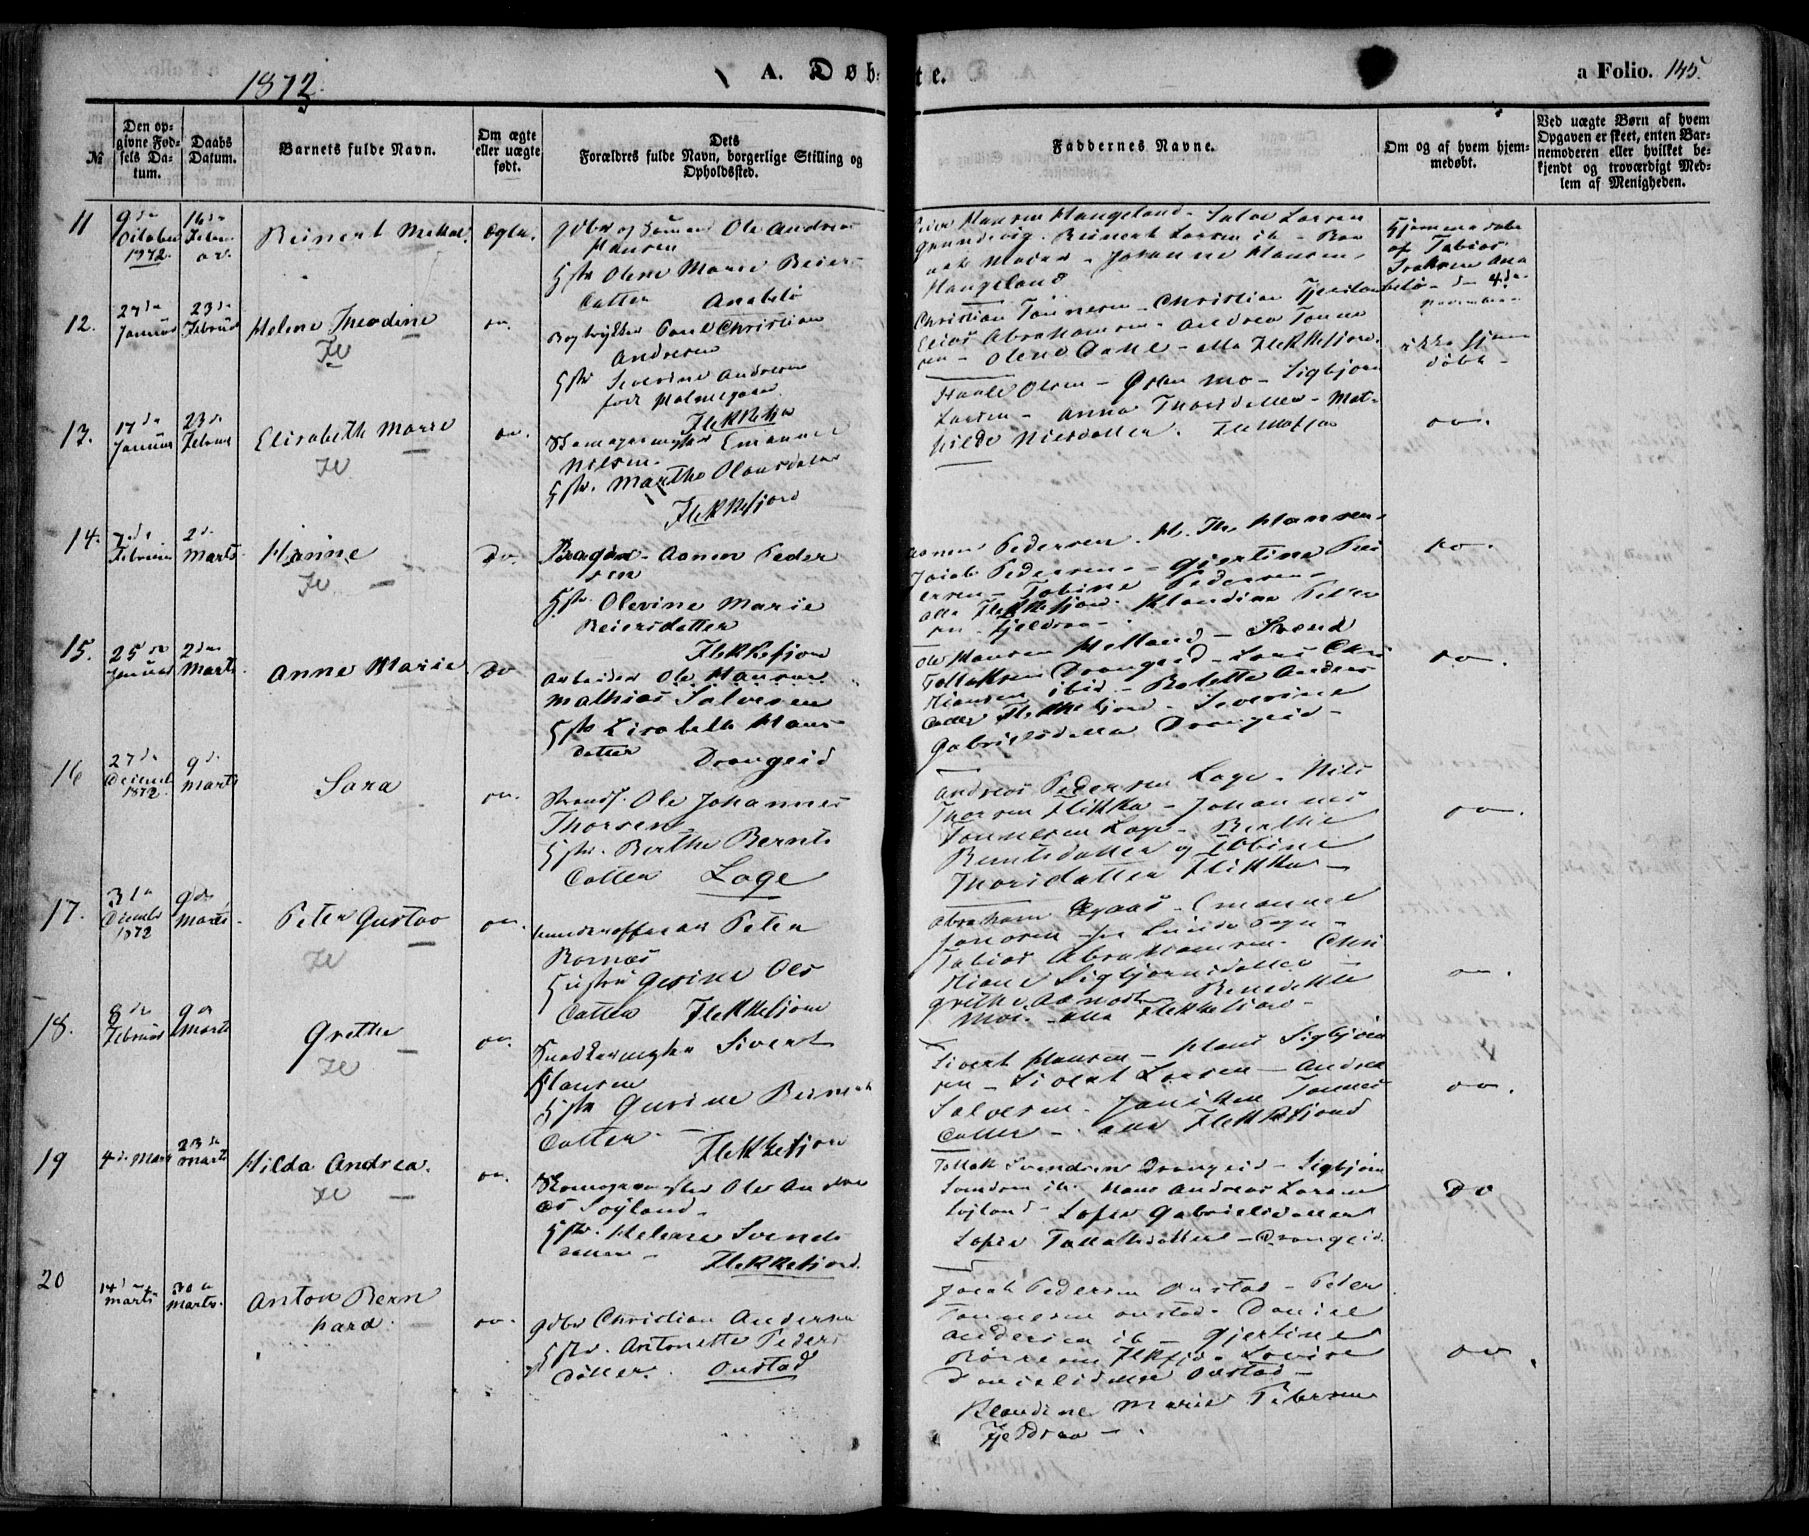 1872.
A. Døb-
te.
a Folio. 145.
№
Den op-
givne Fød-
sels Da-
tum.
Daabs
Datum.
Barnets fulde Navn.
Om ægte
eller uægte
født.
Dets
Forældres fulde Navn, borgerlige Stilling og
Opholdssted.
Faddernes Navne.
Om og af hvem hjem-
medøbt.
Ved uægte Børn af hvem
Opgaven er skeet, enten Bar-
nemoderen eller hvilket be-
kjendt og troværdigt Med-
lem af Menigheden.
11
9de
October
1872.
16de
Febru
Reinert Mikal.
Ægte.
Gdbr og Sømand Ole Andreas
Hansen
Hstr Olene Marie Beiers
datter Anabelø
Peier Hansen Haugeland - Salve Larsen
Grundevig. Reinert Larsen ib -
Johanne Hansen,
Haugeland
Hjemmedøbt
af Tobias
Isaksen Ana
beløe d 4de
November
12.
27de
Januar
23de
Februar
Helene Theodine
Fl
do.
Bogtrykker Paul Christian
Andresen
Hstr Severine Andresen
født Holmegaard
Flekkefjor
Christian Tønnesen - Christian Tjersland
Elias Abrahamsen - Andrea Tønne
sen - Olene Dahl - alle Flekkefjord.
ikke hjem
døbt -
13.
17de
Januar
23de
Februar
Elisabeth Marie
Fl
do.
Skomagermester Emanuel
Nilsen.
Hstr. Marthe Olausdatter
Flekkefjord
Olsen - Østen Mo - Sigbjørn
Larsen - Anna Thorsdatter - Mat-
hilde Nielsdatter. Flekkefjor
do.
14.
7de
Februar
2de
Marts
Hanne
Fl
Do.
Aanen Peder
sen
Hstr. Olevine Marie
Beiersdatter
Flekkefjord
Aanen Pedersen. H. Th. Hansen.
Jacob Pedersen - Gjertine Pe
ersen - Tobine Pedersen -
alle Flekkefjord. Klandine Peder
sen. Fjeldsaa -
do.
15.
25de
Januar
2den
Marts
Anne Marie
Do
Arbeider Ole Hansen
Mathias Salvesen
Hstr Lisabeth Hans
datter Drangeid
Ole Hansen Helland - Svend
Tollaksen Drangeid - Lars Chri
stiansen ibid - Bolette Anders
datter Flekkefjord - Severine
Gabrielsdatter Drangeid -
do.
16
27de
Decemb
1872.
9de
Marts
Sara
do.
Strands. Ole Johannes
Thorsen
Hstr. Berthe Bernts
datter Loge
Andreas Pedersen Loge - Nils
Thorsen Flikka - Johannes
Tønnesen Loge - Berthe
Berntsdatter og Tobine
Thorsdatter Flikka -
do.
17.
31te
Decembr
1872
9de
Marts
Peter Gustav
Fl
do.
Underofficer Peter
Rornæs
Hustru Gesine Ols
datter Flekkefjord
Abraham - Emanuel
Jonassen Lunde Sogn -
Tobias Abrahamsen. Chri
stiane Sigbjørnsdatter -
Grethe Benedikte
Moi. alle Flekkefjord -
do.
18.
8de
Februar
9de
Marts
Grethe
Fl
do.
Snedkermester Sivert
Hansen
Hstr Gurine Berner
datter. - Flekkefjor
Sivert Hansen - Hans Sigbjørn
sen - Sivert Larsen - Andrea
Salvesen. Tønnes
datter - alle Flekkefjord
do.
19
4de Marts
23de
Marts
Hilda Andrea.
Fl
do.
Skomagermester Ole Andre
as Søyland -
Hstr. Helene Svends
datter - Flekkefjord.
Tollak Svendsen Drangeid - Sigbjørn
Svendsen ib. Hans Andreas Larsen
Søyland - Sofie Gabrielsdatter
Sofie Tollaksdatter - Drangeid.
Do
20
14de
Marts
30te
Marts.
Anton Bern
hard.
do.
Gdbr Christian Andersen
Hstr. Antonette Peders
datter. Oustad
Jacob Pedersen Oustad - Peder
Tønnesen Oustad - Daniel
Andersen ib - Gjertine
Flkfjd. Lovise
Danielsdatter Oustad -
Klandine Marie Pedersen
Fjeldsaa -
do.